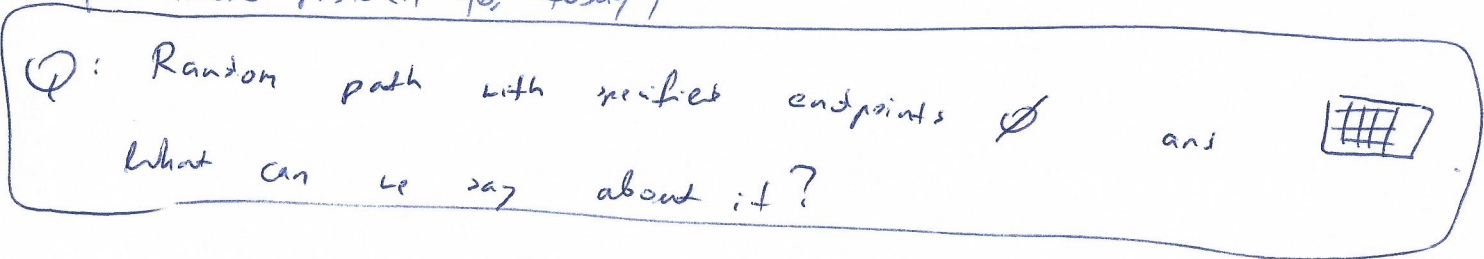 for today)
Q: Random path with specified endpoints ∅ and
What can we say about it?